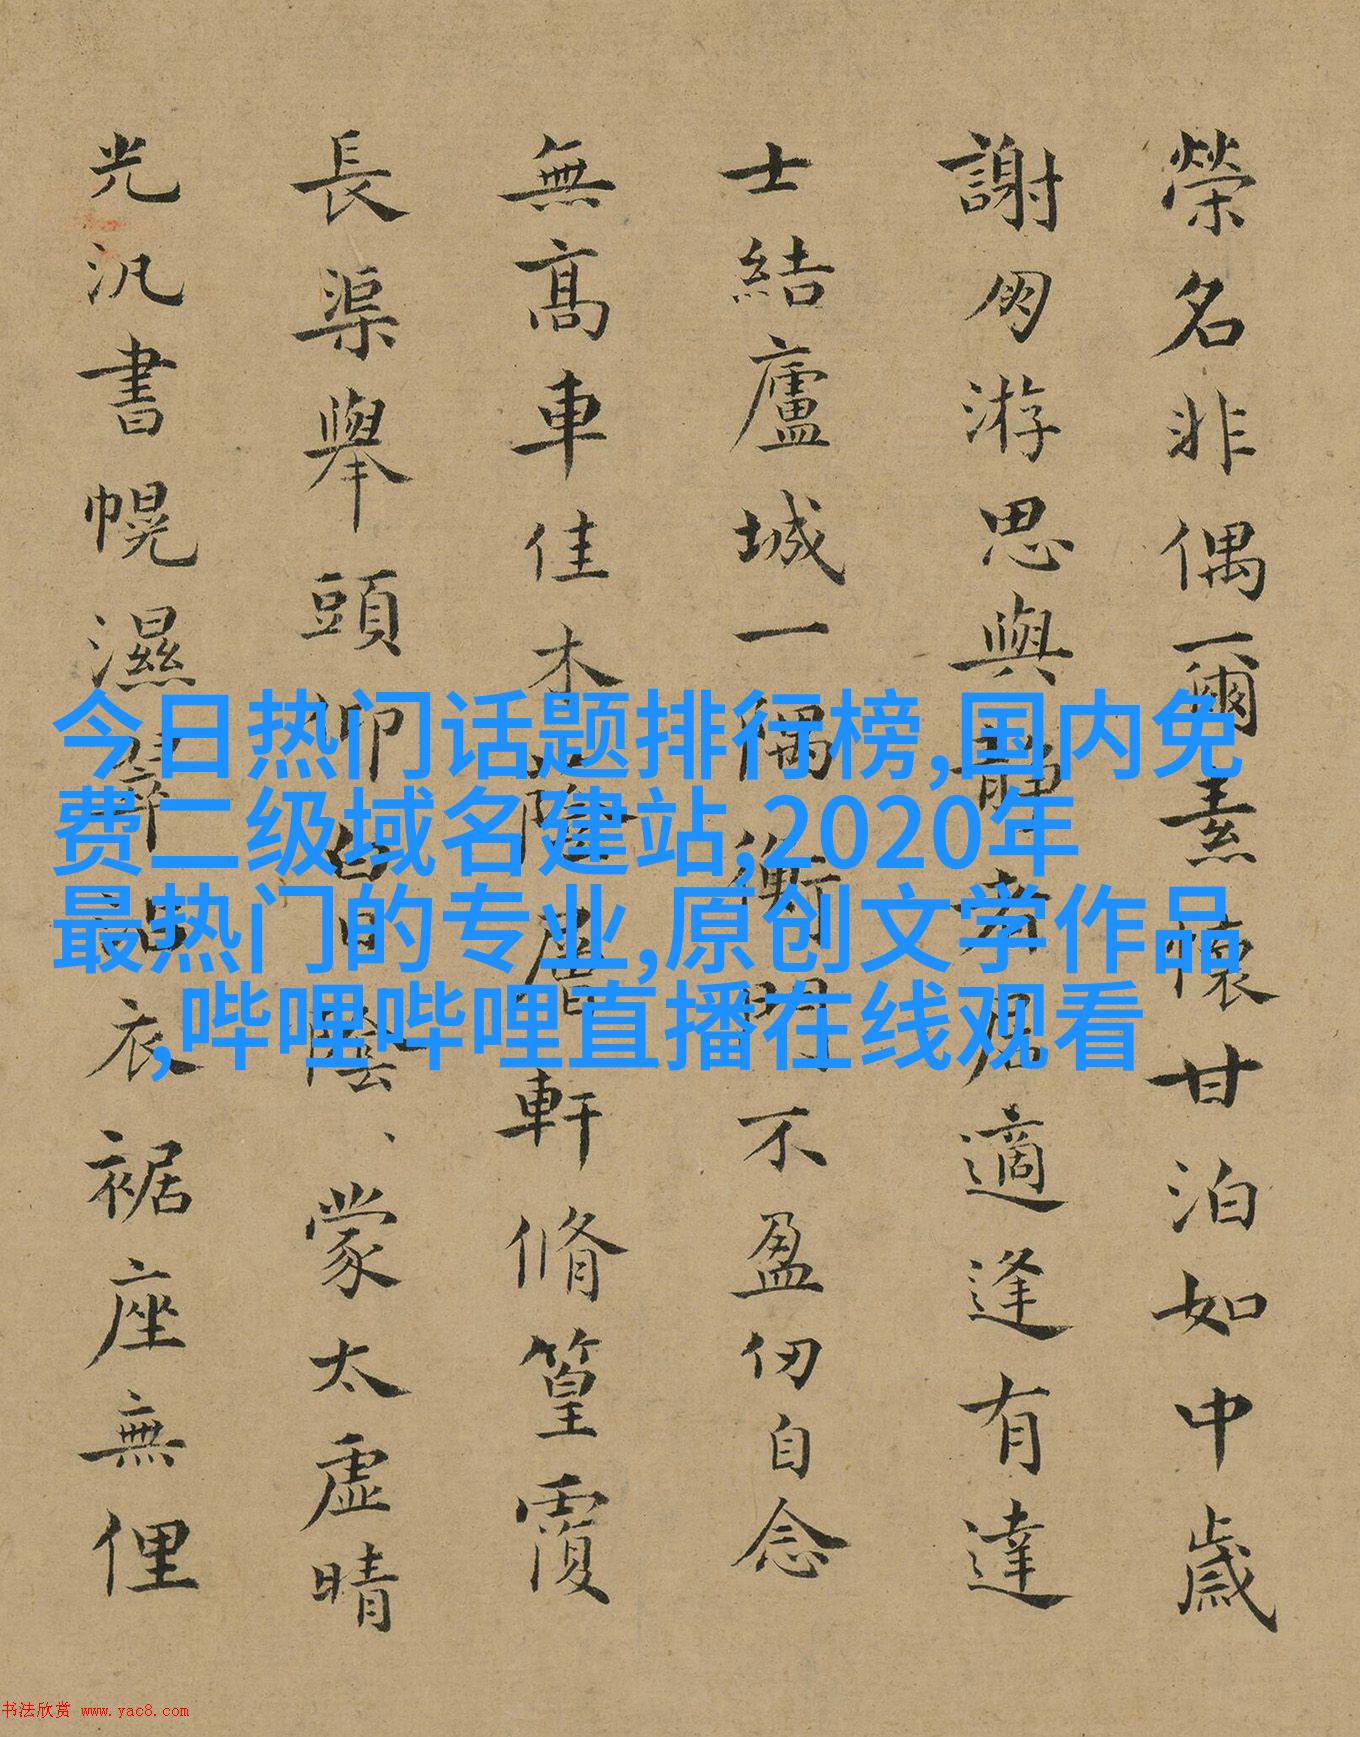 榮名非偶爾素懷甘泊如中歲
謝朋游思與靜者居適逢有達
士結廬城一隅衡門不盈仞自念
無髙車佳木蔭層軒脩篁覆
長渠舉頭仰白日陰、蒙太虛晴
光汎書幌濕翠沾衣裾座無俚
今日热门话题排行榜,国内免
费二级域名建站,2020年
最热门的专业,原创文学作品
,哔哩哔哩直播在线观看
书法欣赏 www.yac8.com